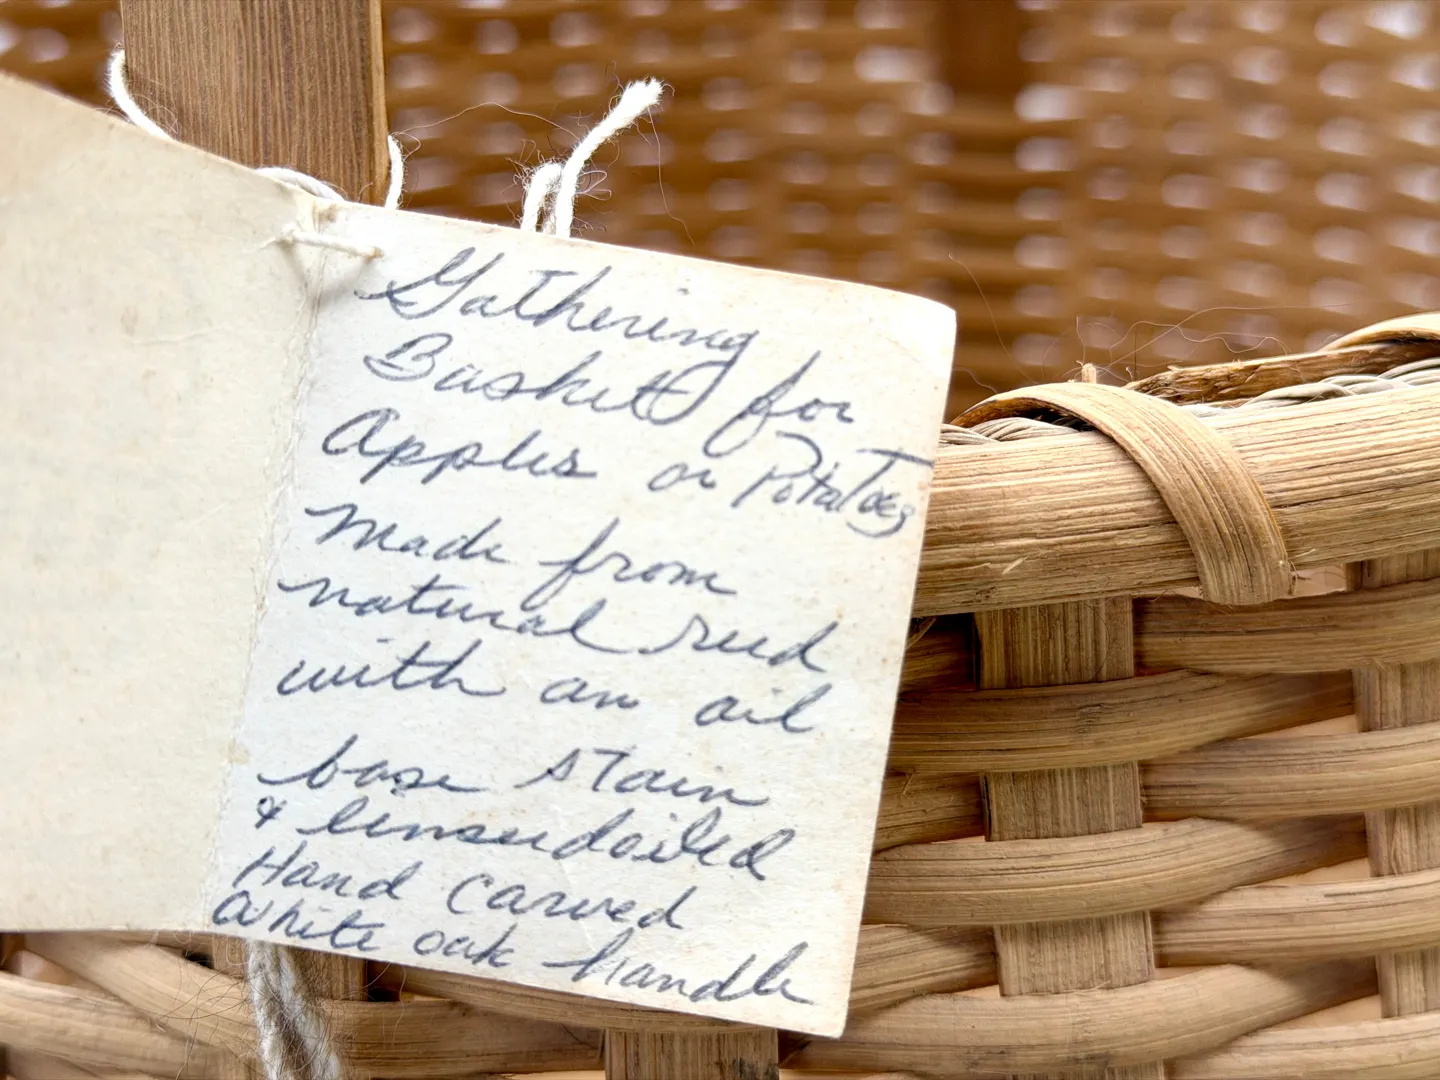 Gathering
Basket for
Apples or Potatoes
Made from
natural reed
with an oil
base stain
& linseedoiled
Hand carved
White oak handle